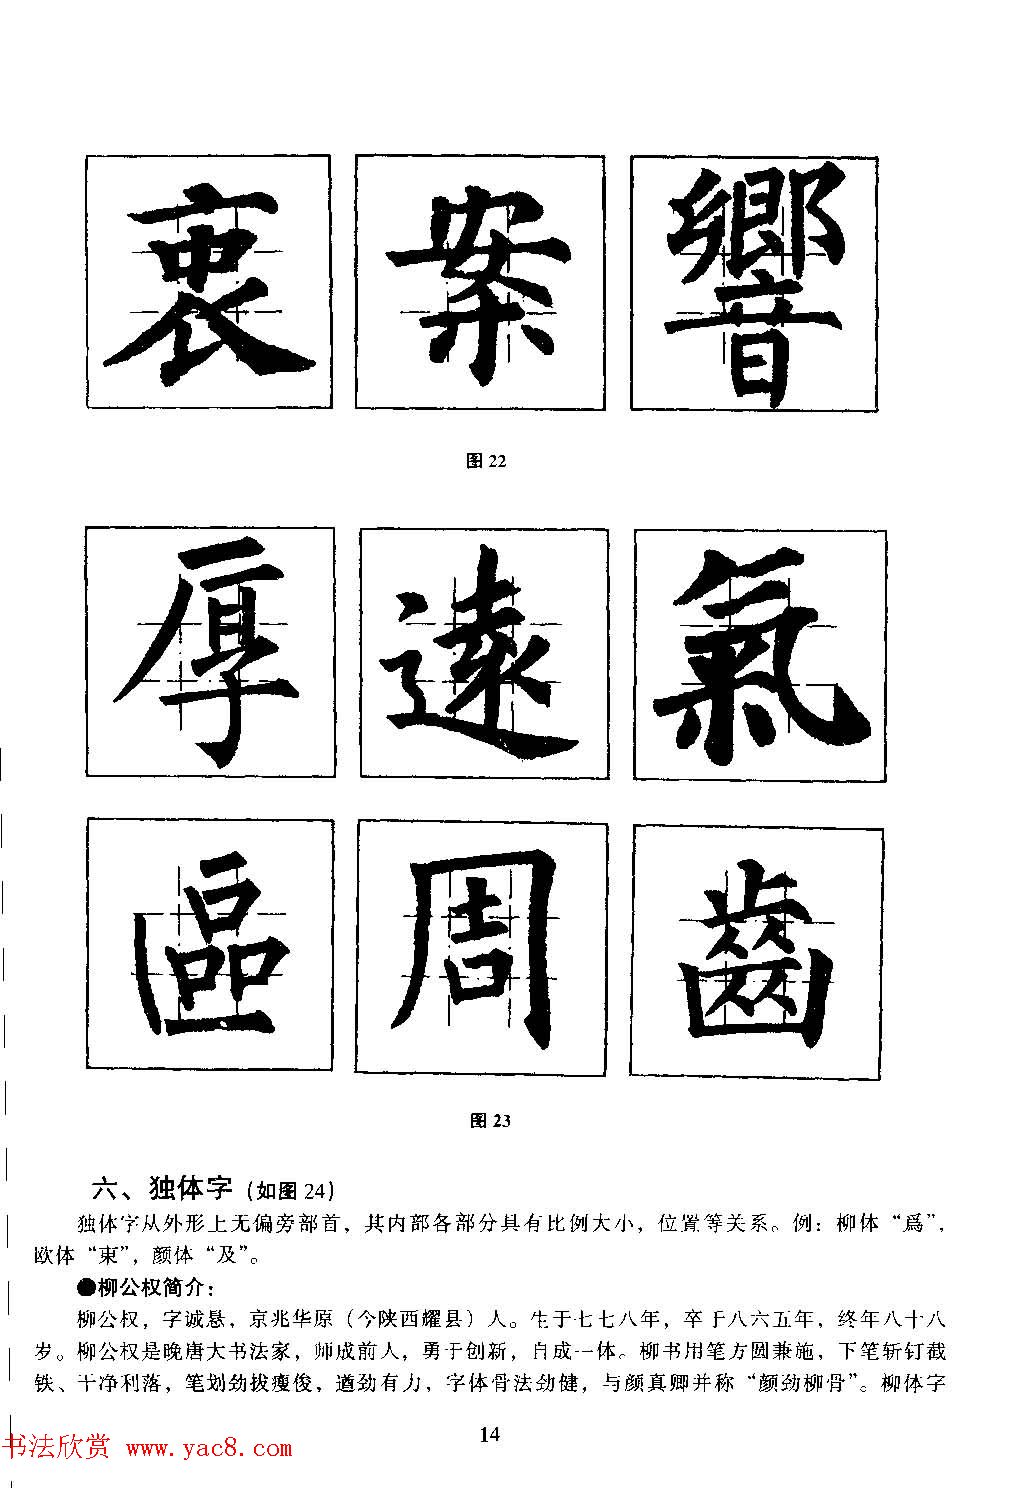 衷 案 響
图 22
厚 遠 氣
區 周 齒
图 23
六、独体字(如图 24)
独体字从外形上无偏旁部首，其内部各部分具有比例大小，位置等关系。例：柳体“爲”，
欧体“東”，颜体“及”。
●柳公权简介：
柳公权，字诚悬，京兆华原（今陕西耀县）人。生于七七八年，卒于八六五年，终年八十八
岁。柳公权是晚唐大书法家，师成前人，勇于创新，自成一体。柳书用笔方圆兼施，下笔斩钉截
铁、干净利落，笔划劲拔瘦俊，遒劲有力，字体骨法劲健，与颜真卿并称“颜劲柳骨”。柳体字
14
书法欣赏 www.yac8.com